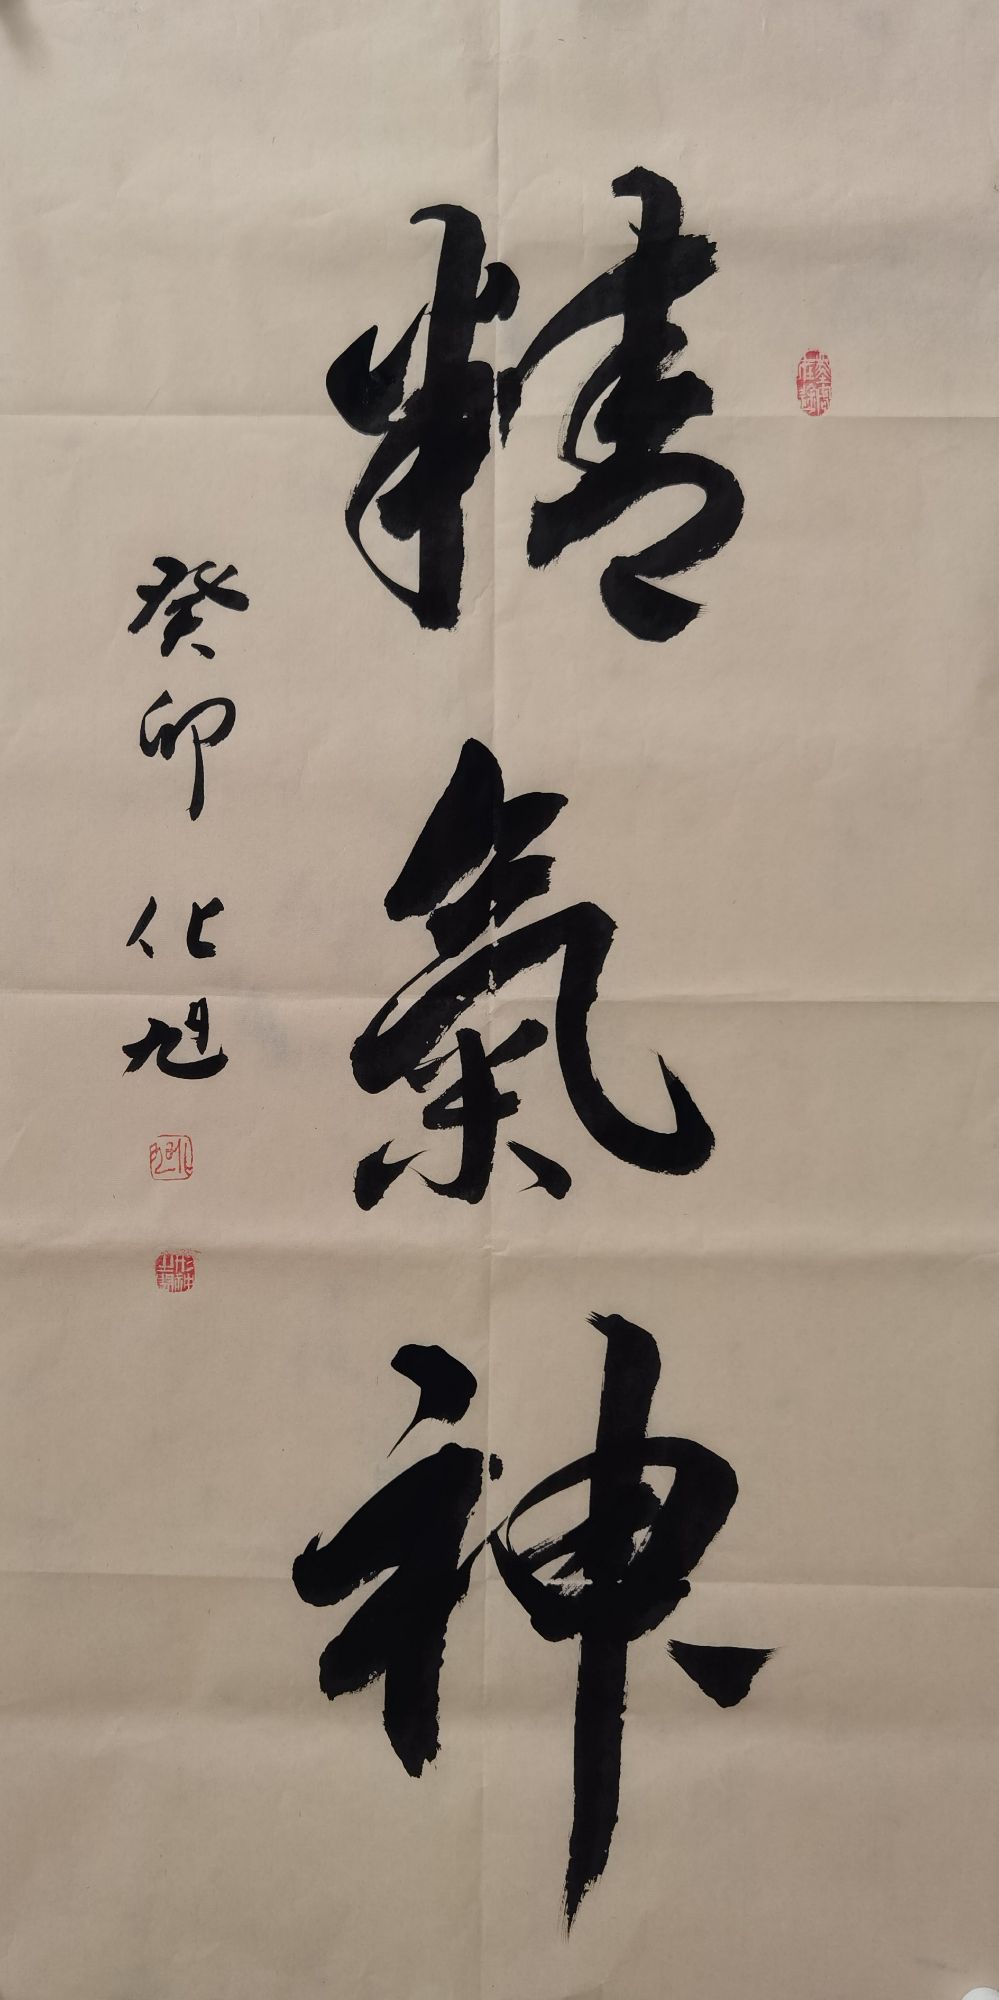 精氣神
癸卯 化旭